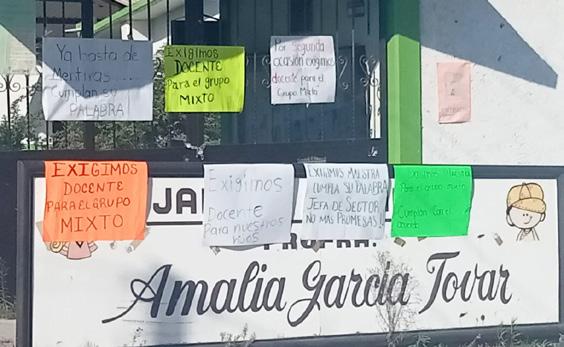 Ya basta de
Mentiras....
Cumplan su
PALABRA!
EXIGIMOS
DOCENTE
Para el grupo
MIXTO
Por segunda
ocasión exigimos
docente para el
Grupo Mixto
EXIGIMOS
DOCENTE
PARA EL GRUPO
MIXTO
Exigimos
Docente
Para nuestros
hijos
EXIGIMOS MAESTRA
CUMPLA SU PALABRA
JEFA DE SECTOR
NO MÁS PROMESAS!
Para el grupo mixto
Cumplan con el
JA
PROFRA.
Amalia García Tovar